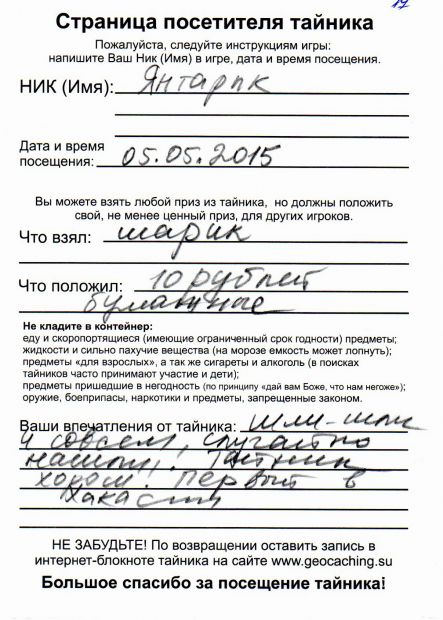 17
Страница посетителя тайника
Пожалуйста, следуйте инструкциям игры:
напишите Ваш Ник (Имя) в игре, дата и время посещения.
НИК (Имя): Янтарик
Дата и время
посещения: 05.05.2015
Вы можете взять любой приз из тайника, но должны положить
свой, не менее ценный приз, для других игроков.
Что взял: шарик
Что положил: 10 рублей
бумажные
Не кладите в контейнер:
еду и скоропортящиеся (имеющие ограниченный срок годности) предметы;
жидкости и сильно пахучие вещества (на морозе емкость может лопнуть);
предметы «для взрослых», а так же сигареты и алкоголь (в поисках
тайников часто принимают участие и дети);
предметы пришедшие в негодность (по принципу «дай вам Боже, что нам негоже»);
оружие, боеприпасы, наркотики и предметы, запрещенные законом.
Ваши впечатления от тайника: шли-шли
и совсем случайно
нашли! Тайник
хорош! Первый в
Хакасии
НЕ ЗАБУДЬТЕ! По возвращении оставить запись в
интернет-блокноте тайника на сайте www.geocaching.su
Большое спасибо за посещение тайника!